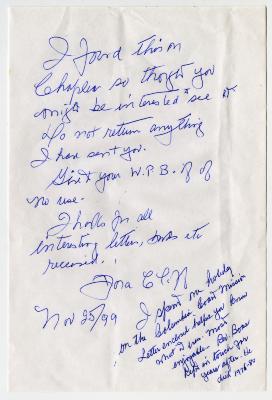 I found this on
Chaplin so thought you
might be interested to see it
Do not return anything
I have sent you.
Give it your W.P.B. if of
no use.
Thanks for all
interesting letters, cards etc
received.
Dora
Nov 25/99
I spent my holiday
on the Columbia Coast Mission
Letter enclosed helps you know
what I
enjoyable. Rev.
kept in touch for
years after. He
died 1978-80